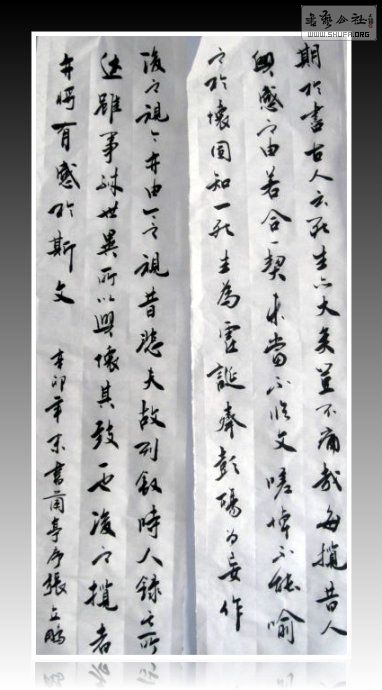 期於盡古人云死生亦大矣豈不痛哉每攬昔人
興感之由若合一契未嘗不臨文嗟悼不能喻
之於懷固知一死生為虛誕齊彭殤為妄作
後之視今亦由今之視昔悲夫故列敘時人錄其所
述雖事殊世異所以興懷其致一也後之攬者
亦將有感於斯文 辛卯年末書蘭亭序張立鵬
書藝公社
WWW.SHUFA.ORG